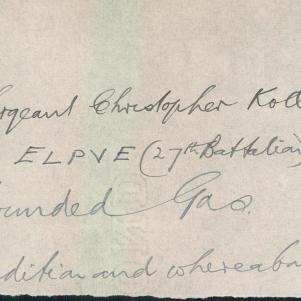 ergeant Christopher Koll
ELPVE (27th Battalian)
ounded Gas.
ndition and whereabou